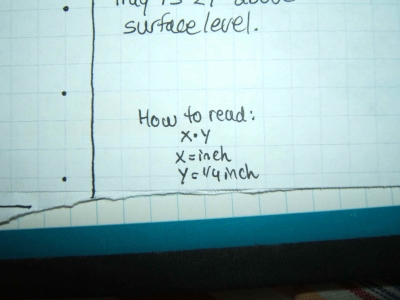 above
surface level.
How to read:
X•Y
X=inch
Y=1/4 inch